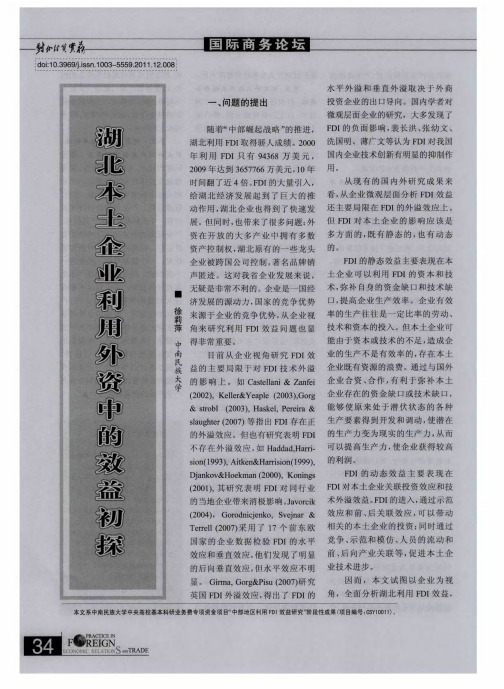 国际商务论坛
doi:10.3969/j.issn.1003-5559.2011.12.008
湖北本土企业利用外资中的效益初探
■徐莉萍 中南民族大学
一、问题的提出
随着“中部崛起战略”的推进，
湖北利用FDI取得骄人成绩。2000
年利用 FDI 只有 94368 万美元，
2009年达到3657766万美元，10年
时间翻了近4倍。FDI的大量引入，
给湖北经济发展起到了巨大的推
动作用，湖北企业也得到了快速发
展。但同时，也带来了很多问题：外
资在开放的大多产业中拥有多数
资产控制权，湖北原有的一些龙头
企业被跨国公司控制，著名品牌销
声匿迹。这对我省企业发展来说，
无疑是非常不利的。企业是一国经
济发展的源动力，国家的竞争优势
来源于企业的竞争优势，从企业视
角来研究利用 FDI 效益问题也显
得非常重要。
目前从企业视角研究 FDI 效
益的主要局限于对 FDI 技术外溢
的影响上，如 Castellani & Zanfei
(2002), Keller&Yeaple (2003),Gorg
& strobl (2003), Haskel, Pereira &
slaughter (2007) 等指出 FDI 存在正
的外溢效应。但也有研究表明FDI
不存在外溢效应，如 Haddad,Harri-
sion(1993), Aitken&Harrision(1999),
Djankov&Hoekman (2000), Konings
(2001), 其研究表明 FDI 对同行业
的当地企业带来消极影响。Javorcik
(2004), Gorodnicjenko, Svejnar &
Terrell (2007)采用了 17 个前东欧
国家的企业数据检验 FDI 的水平
效应和垂直效应，他们发现了明显
的后向垂直效应，但水平效应不明
显。 Girma, Gorg&Pisu (2007)研究
英国 FDI 外溢效应，得出了 FDI 的
水平外溢和垂直外溢取决于外商
投资企业的出口导向。国内学者对
微观层面企业的研究，大多发现了
FDI 的负面影响，袁长洪、张幼文、
洗国明、薄广文等认为 FDI 对我国
国内企业技术创新有明显的抑制作
用。
从现有的国内外研究成果来
看，从企业微观层面分析 FDI 效益
还主要局限在 FDI 的外溢效应上，
但 FDI 对本土企业的影响应该是
多方面的，既有静态的，也有动态
的。
FDI 的静态效益主要表现在本
土企业可以利用 FDI 的资本和技
术，弥补自身的资金缺口和技术缺
口，提高企业生产效率。企业有效
率的生产往往是一定比率的劳动、
技术和资本的投入。但本土企业可
能由于资本或技术的不足，造成企
业的生产不是有效率的，存在本土
企业既有资源的浪费。通过与国外
企业合资、合作，有利于弥补本土
企业存在的资金缺口或技术缺口，
能够使原来处于潜伏状态的各种
生产要素得到开发和调动，使潜在
的生产力变为现实的生产力，从而
可以提高生产力，使企业获得较高
的利润。
FDI 的动态效益主要表现在
FDI 对本土企业关联投资效应和技
术外溢效益。FDI的进入，通过示范
效应和前、后关联效应，可以带动
相关的本土企业的投资；同时通过
竞争、示范和模仿、人员的流动和
前、后向产业关联等，促进本土企
业技术进步。
因而，本文试图以企业为视
角，全面分析湖北利用 FDI 效益，
本文系中南民族大学中央高校基本科研业务费专项资金项目“中部地区利用FDI效益研究”阶段性成果（项目编号：CSY10011）。
34 PRACTICE IN
FOREIGN
ECONOMIC RELATIONS AND TRADE